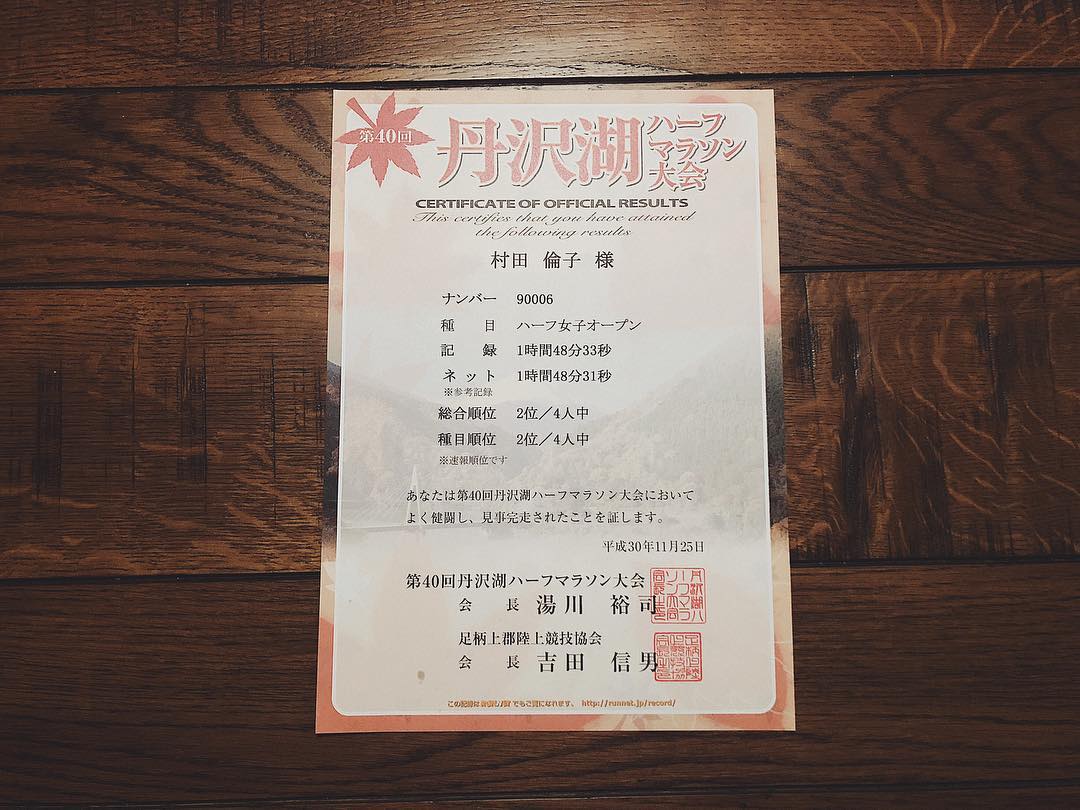 第40回
丹沢湖
ハーフ
マラソン
大会
CERTIFICATE OF OFFICIAL RESULTS
This certifies that you have attained
the following results
村田 倫子 様
ナンバー 90006
種 目 ハーフ女子オープン
記 録 1時間48分33秒
ネット 1時間48分31秒
※参考記録
総合順位 2位／4人中
種目順位 2位／4人中
※速報順位です
あなたは第40回丹沢湖ハーフマラソン大会において
よく健闘し、見事完走されたことを証します。
平成30年11月25日
第40回丹沢湖ハーフマラソン大会
会 長 湯川 裕司
足柄上郡陸上競技協会
会 長 吉田 信男
この記録は でもご覧になれます。 http://runnet.jp/record/